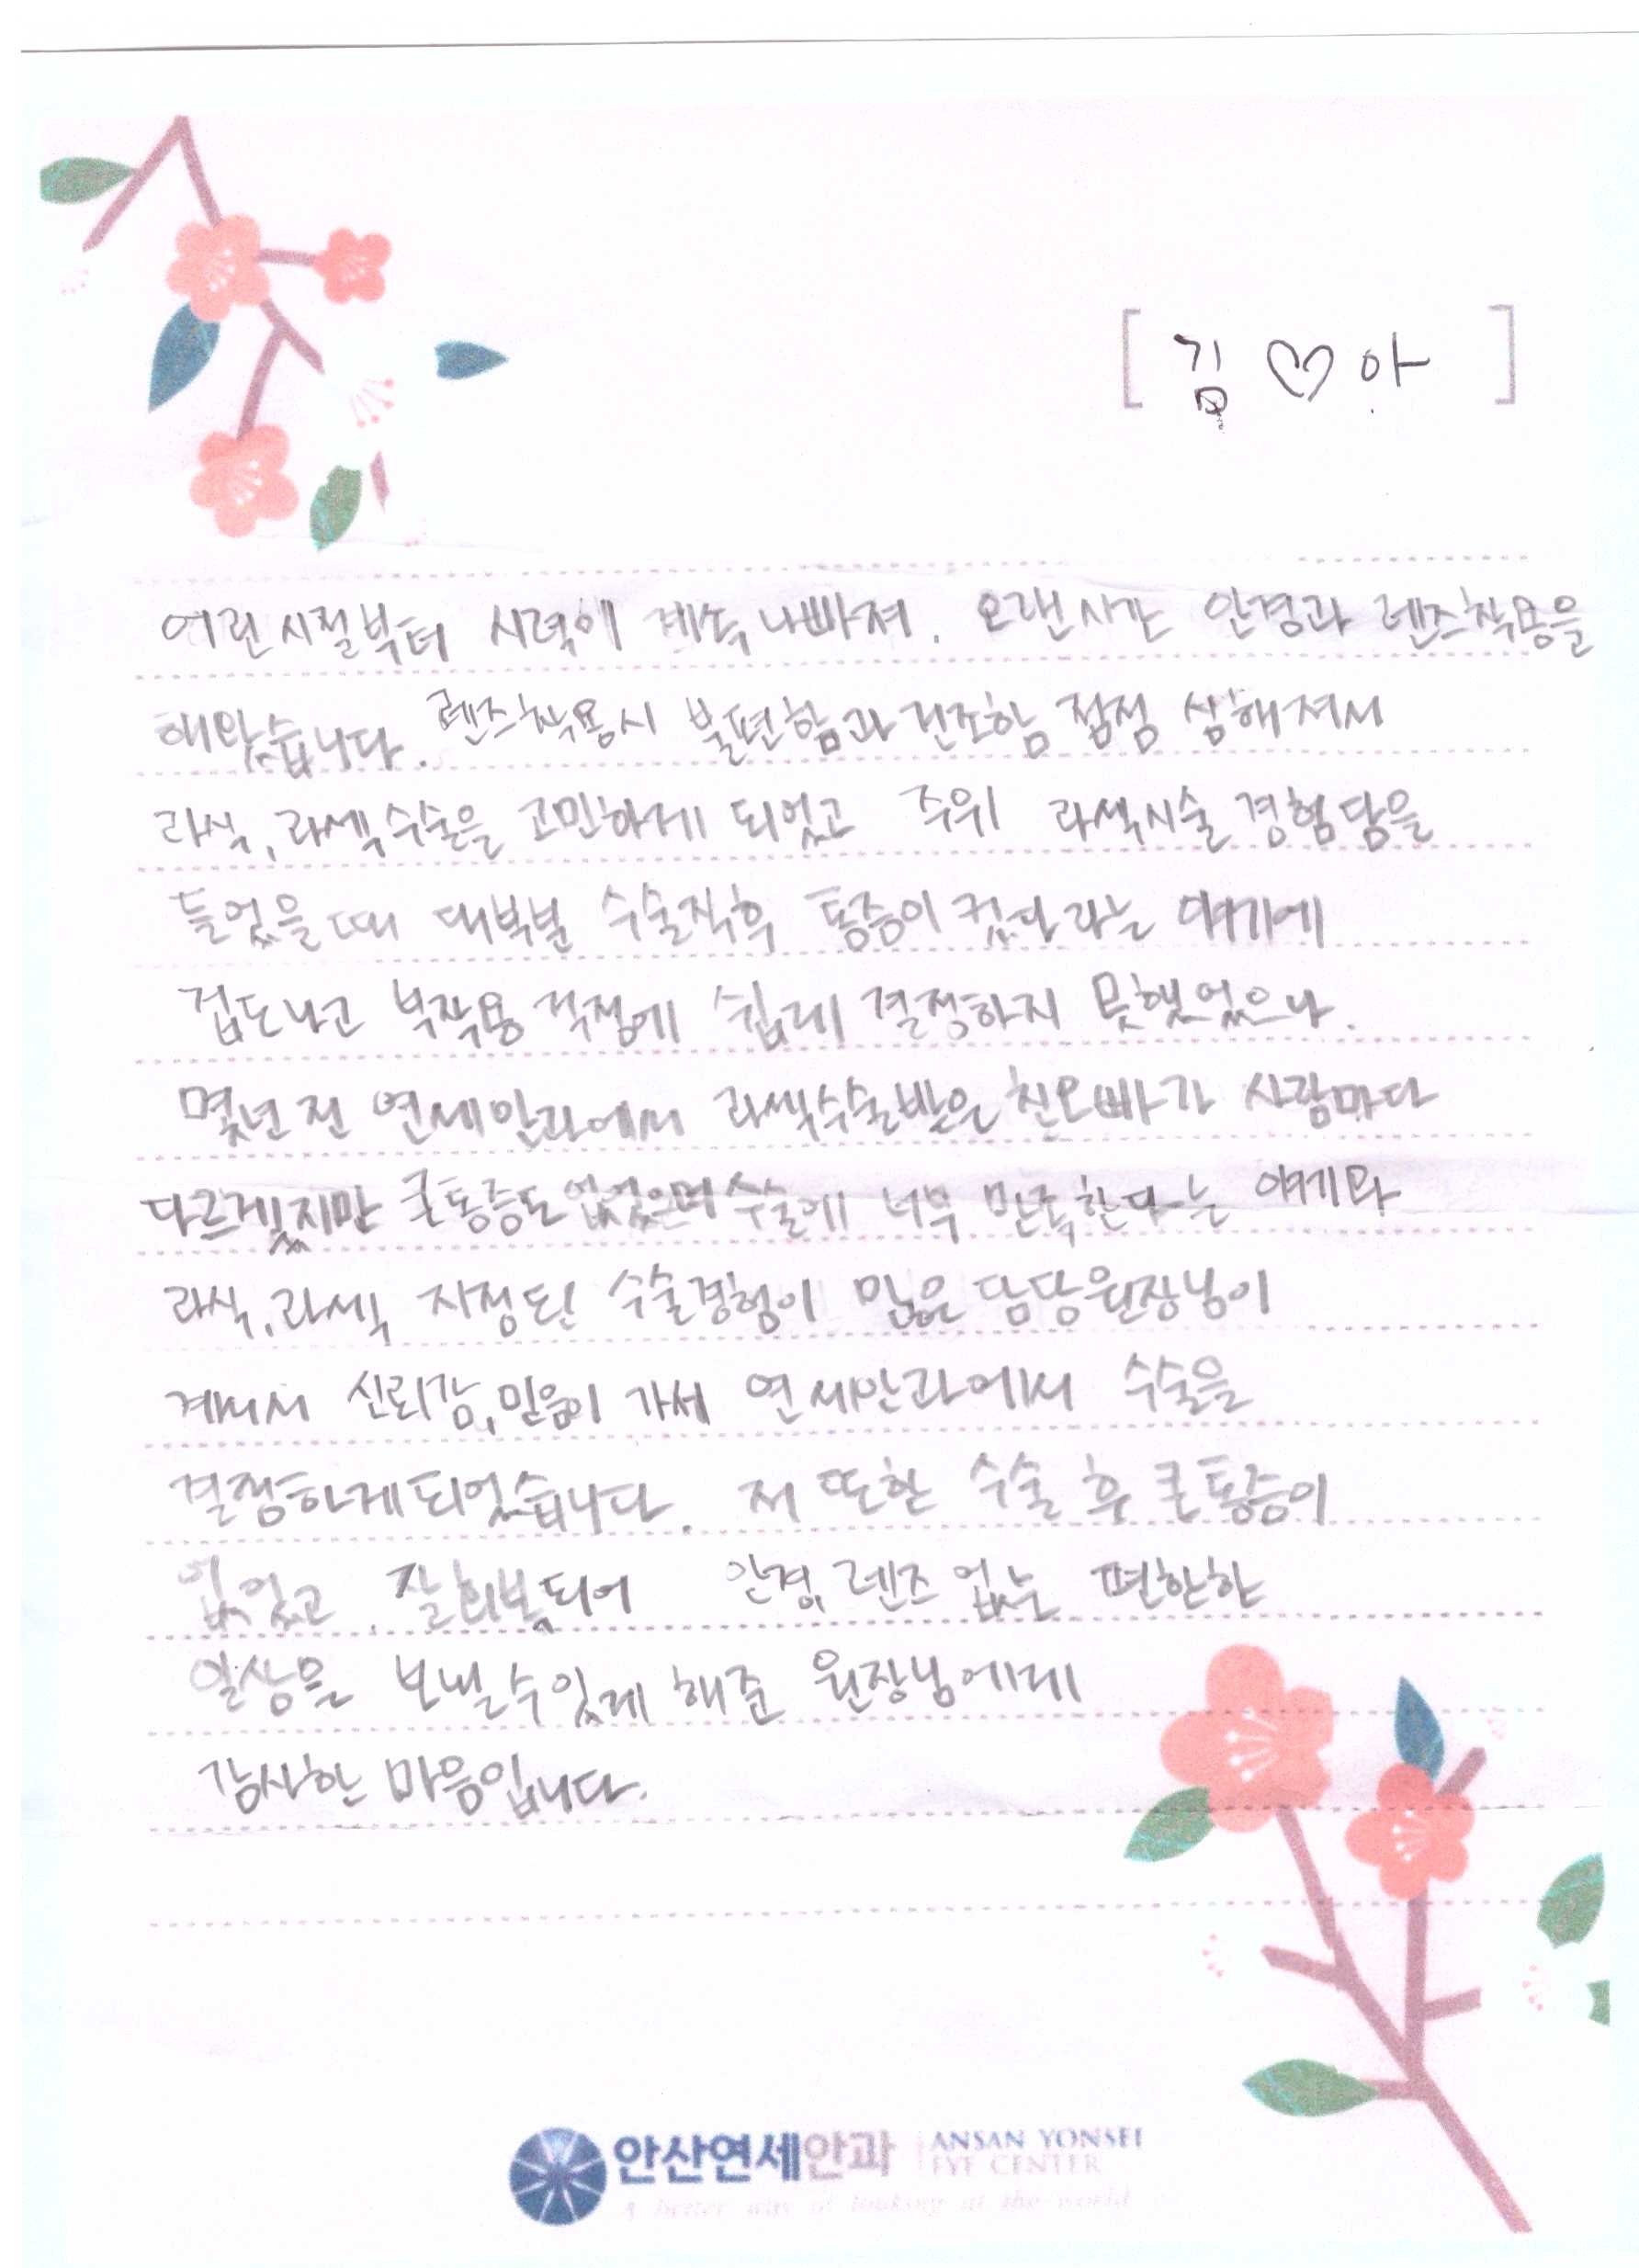 [ 김 ♡ 아 ]
어린시절부터 시력이 계속 나빠져. 오랜시간 안경과 렌즈착용을
해왔습니다. 렌즈착용시 불편함과 건조함 점점 심해져서
라식, 라섹수술을 고민하게 되었고 주위 라섹시술 경험담을
들었을때 대부분 수술직후 통증이 컸다라는 얘기에
겁도나고 부작용 걱정에 쉽게 결정하지 못했었으나.
몇년전 연세안과에서 라섹수술받은 친오빠가 사람마다
다르겠지만 큰통증도 없었으며 수술에 너무 만족한다는 얘기와
라식, 라섹 지정된 수술경험이 많은 담당원장님이
계셔서 신뢰감, 믿음이 가서 연세안과에서 수술을
결정하게되었습니다. 저 또한 수술 후 큰통증이
없었고, 잘회복되어 안경, 렌즈 없는 편한한
일상을 보낼수있게 해준 원장님에게
감사한 마음입니다.
안산연세안과 ANSAN YONSEI
EYE CENTER